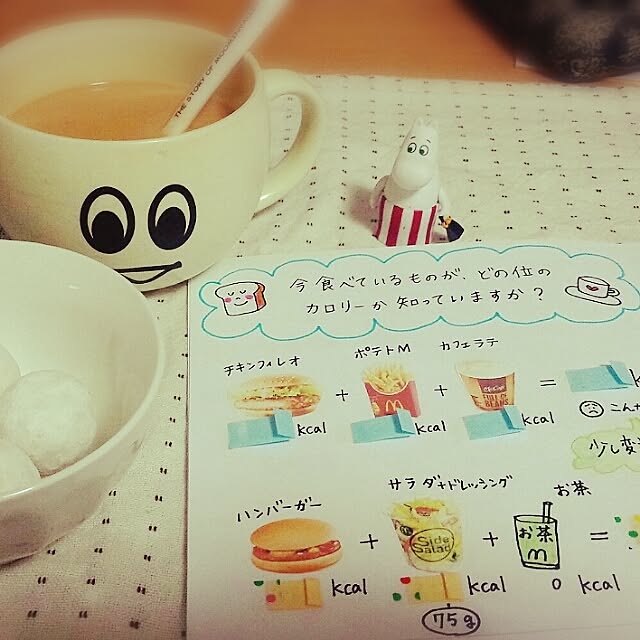 THE STORY OF
今食べているものが、どの位の
カロリーか知っていますか？
チキンフィレオ
ポテトM
カフェラテ
+ + =
kcal kcal kcal
少し変
ハンバーガー
サラダ+ドレッシング
お茶
Side Salad
お茶
m
+ + =
kcal kcal 0 kcal
75g